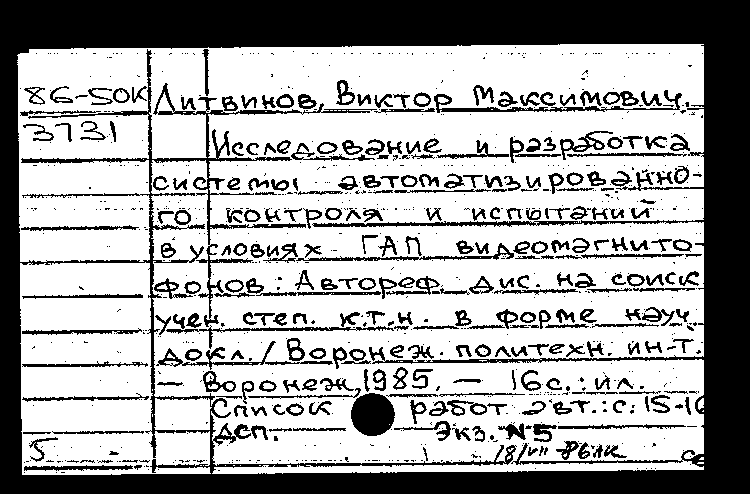 86-50К Литвинов, Виктор Максимович.
3731 Исследование и разработка
системы автоматизированно-
го контроля и испытаний
в условиях ГАП видеомагнито-
фонов: Автореф. дис. на соиск
учен. степ. к.т.н. в форме науч
докл. / Воронеж. политехн. ин-т.
— Воронеж, 1985. — 16с.: ил.
Список работ авт.: с. 15-16
ДСП. Экз. №5
5 18/VII